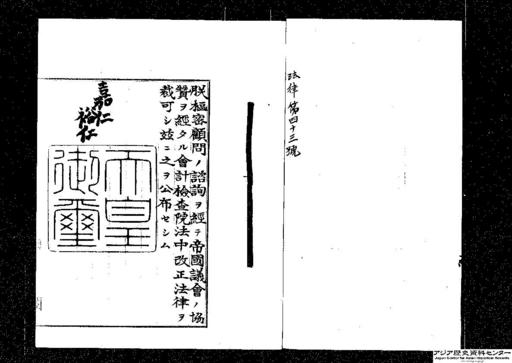 法律第四十三號
朕樞密顧問ノ諮詢ヲ經テ帝國議會ノ協
贊ヲ經タル會計檢査院法中改正法律ヲ
裁可シ玆ニ之ヲ公布セシム
嘉仁
裕仁
天皇
御璽
アジア歴史資料センター
Japan Center for Asian Historical Records